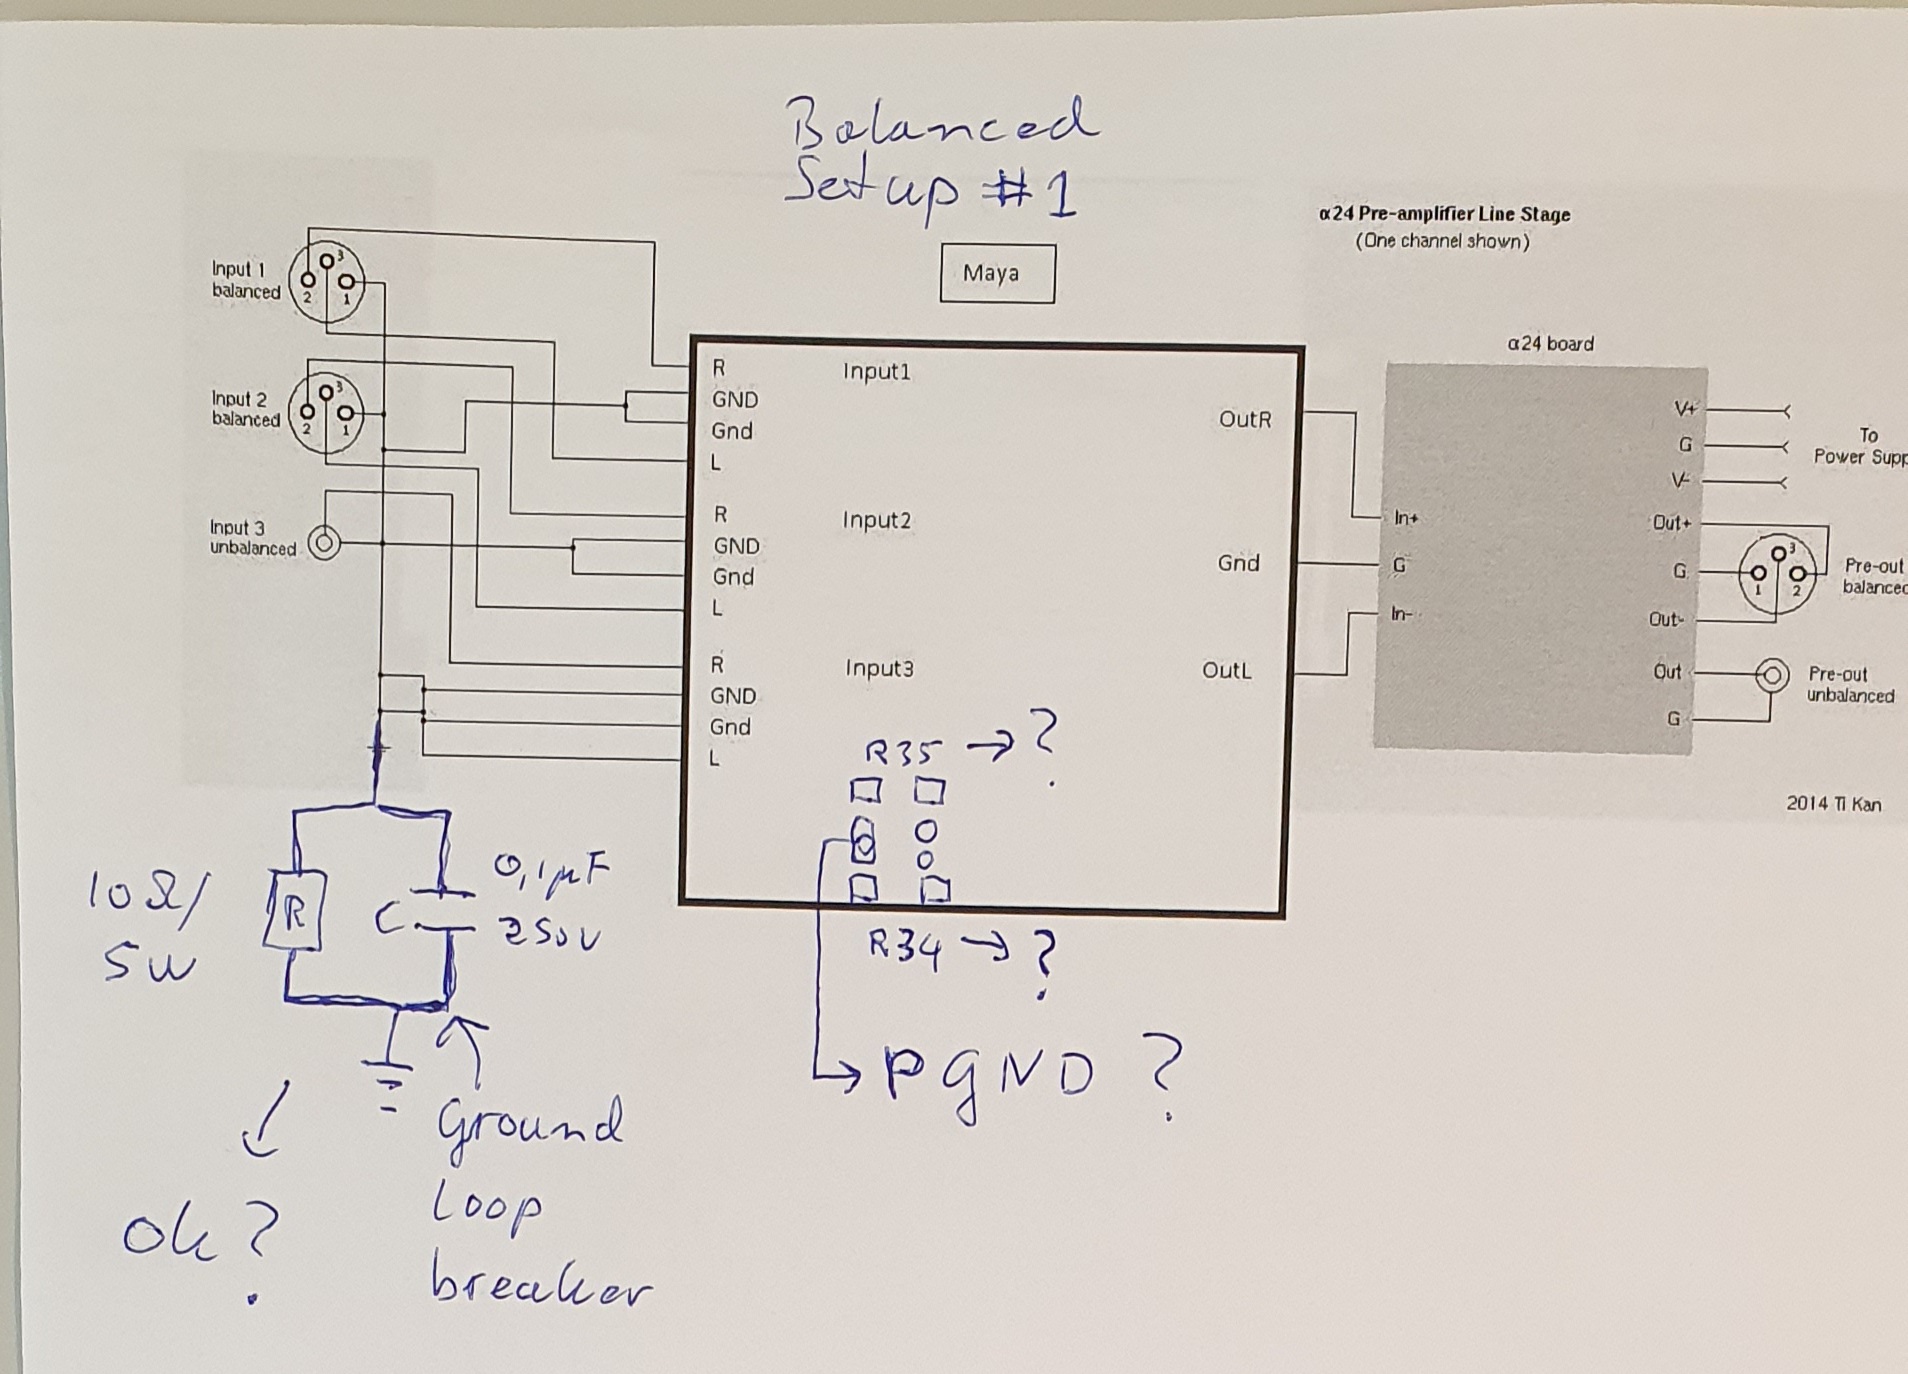 Balanced
Setup #1
α24 Pre-amplifier Line Stage
(One channel shown)
Maya
Input 1
balanced
3
2
1
Input 2
balanced
3
2
1
Input 3
unbalanced
R
GND
Gnd
L
Input1
R
GND
Gnd
L
Input2
R
GND
Gnd
L
Input3
OutR
Gnd
OutL
α24 board
In+
G
In-
V+
G
V-
Out+
G
Out-
Out
G
To
Power Supp
3
1
2
Pre-out
balanced
Pre-out
unbalanced
2014 Ti Kan
R35 → ?
R34 → ?
→ PGND ?
10Ω/
5W
R
C
0,1µF
250V
Ground
Loop
breaker
ok?